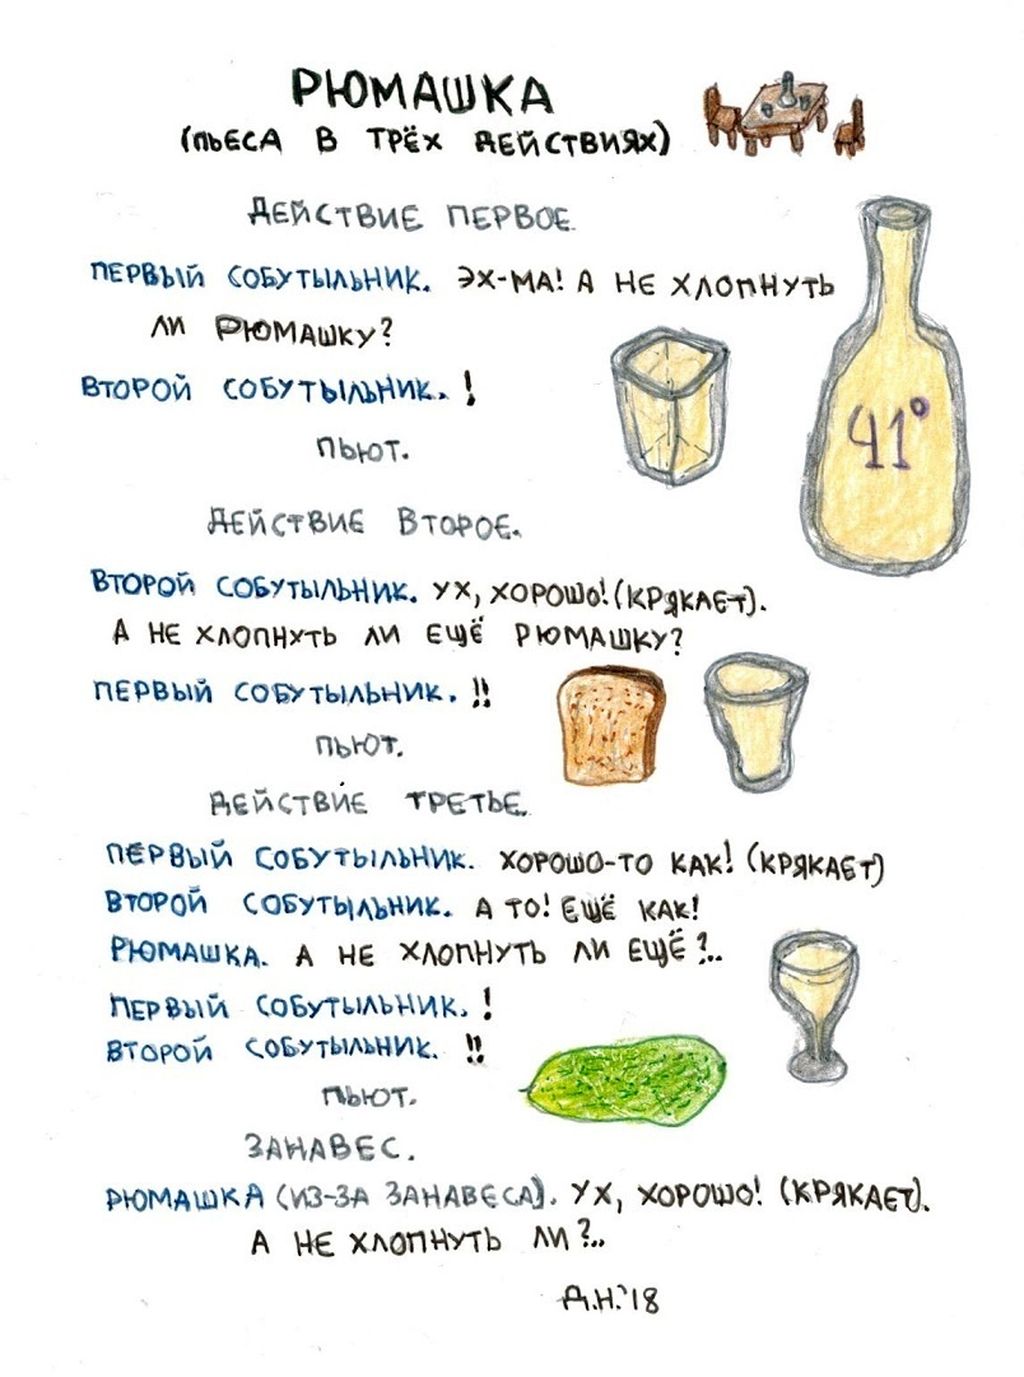 РЮМАШКА
(ПЬЕСА В ТРЁХ ДЕЙСТВИЯХ)
ДЕЙСТВИЕ ПЕРВОЕ.
ПЕРВЫЙ СОБУТЫЛЬНИК. ЭХ-МА! А НЕ ХЛОПНУТЬ
ЛИ РЮМАШКУ?
ВТОРОЙ СОБУТЫЛЬНИК. !
ПЬЮТ.
41°
ДЕЙСТВИЕ ВТОРОЕ.
ВТОРОЙ СОБУТЫЛЬНИК. УХ, ХОРОШО! (КРЯКАЕТ).
А НЕ ХЛОПНУТЬ ЛИ ЕЩЁ РЮМАШКУ?
ПЕРВЫЙ СОБУТЫЛЬНИК. !!
ПЬЮТ.
ДЕЙСТВИЕ ТРЕТЬЕ.
ПЕРВЫЙ СОБУТЫЛЬНИК. ХОРОШО-ТО КАК! (КРЯКАЕТ)
ВТОРОЙ СОБУТЫЛЬНИК. А ТО! ЕЩЁ КАК!
РЮМАШКА. А НЕ ХЛОПНУТЬ ЛИ ЕЩЁ?..
ПЕРВЫЙ СОБУТЫЛЬНИК. !
ВТОРОЙ СОБУТЫЛЬНИК. !!
ПЬЮТ.
ЗАНАВЕС.
РЮМАШКА (ИЗ-ЗА ЗАНАВЕСА). УХ, ХОРОШО! (КРЯКАЕТ).
А НЕ ХЛОПНУТЬ ЛИ?..
Д.Н.'18